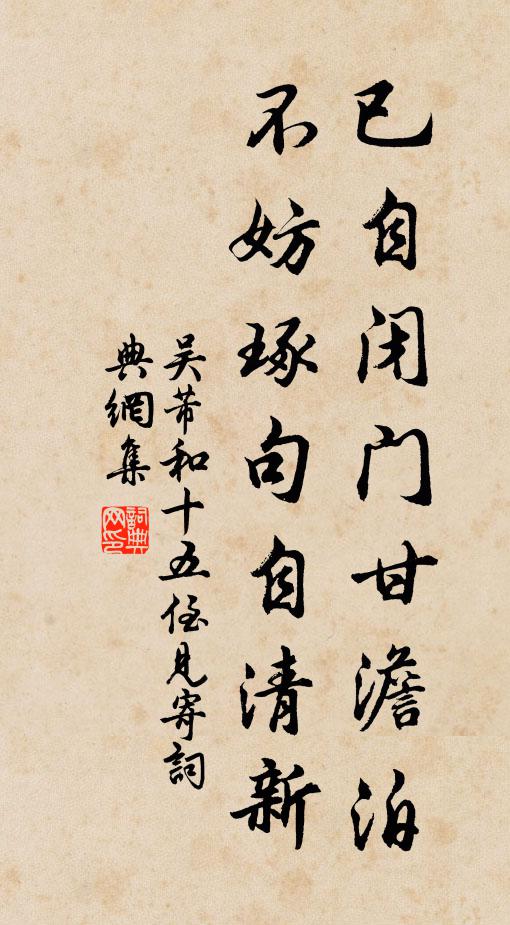 已自闭门甘澹泊
不妨琢句自清新
吴芾和十五侄见寄詞
典網集
詞典网印